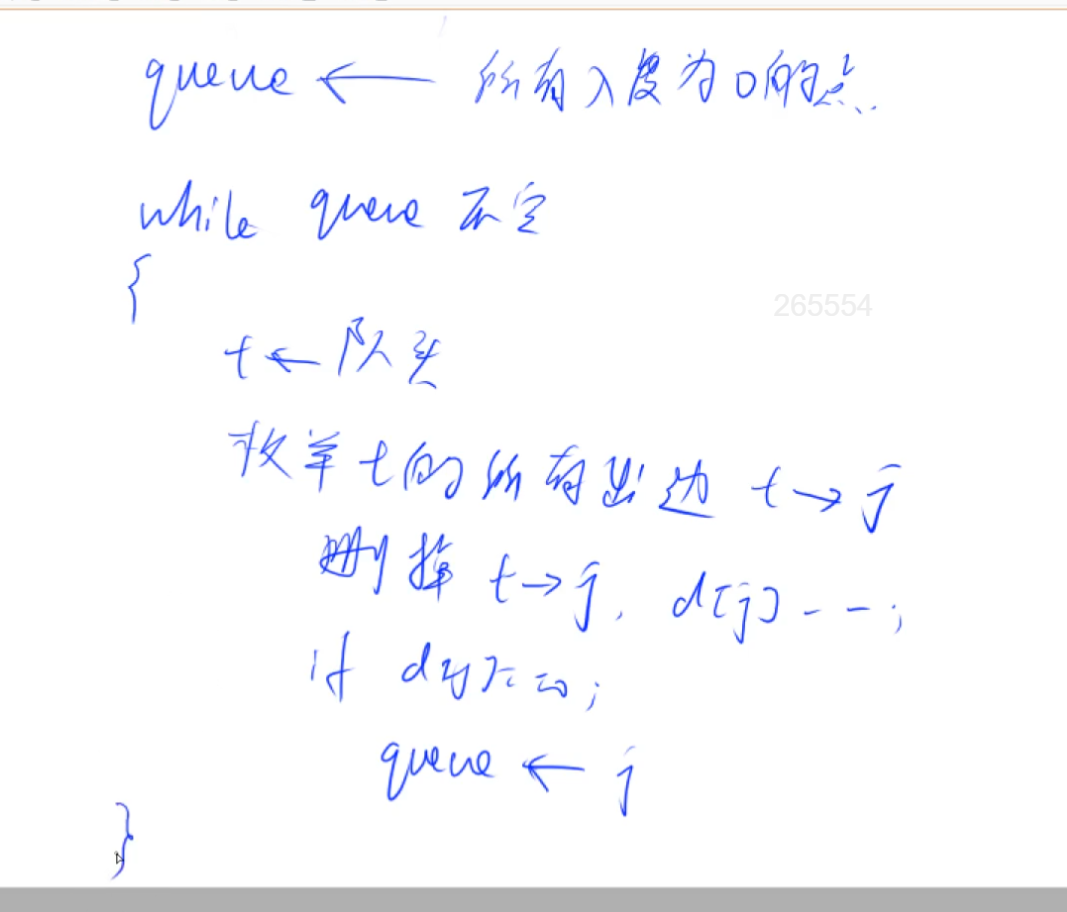 queue ← 所有入度为0的点
while queue 不空
{
265554
t ← 队头
枚举 t的所有出边 t→j
删掉 t→j, d[j]--;
if d[j]==0;
queue ← j
}